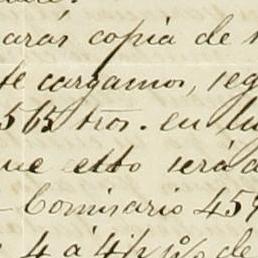 arás copia de
te cargamos, seg
565 tros. en lu
ue esto será a
- Comisario 459
4 á 4½ % de